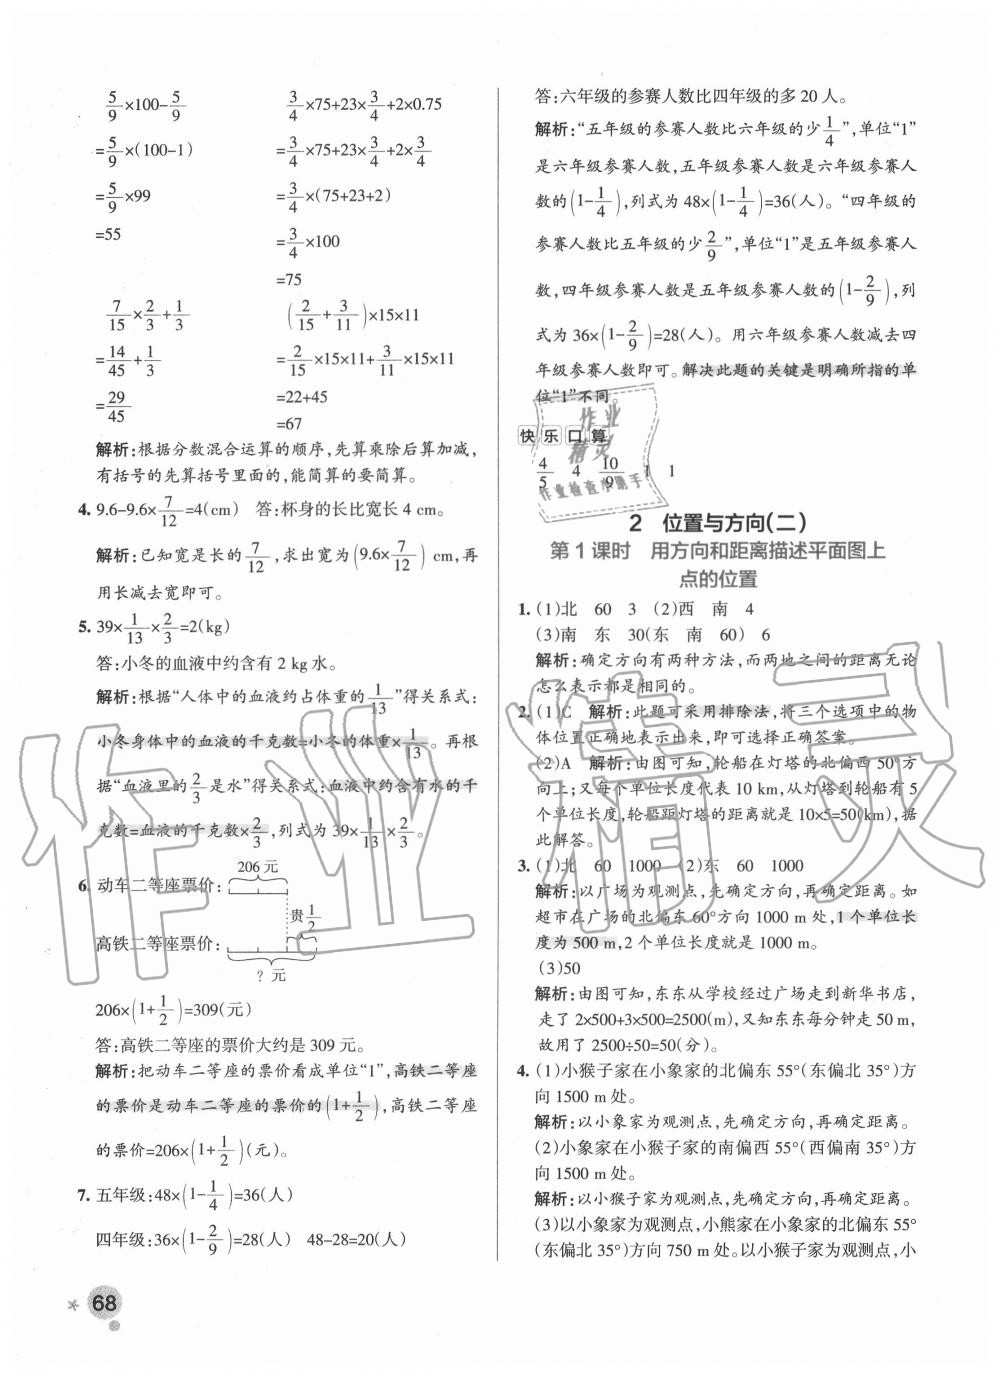 5/9×100-5/9
=5/9×(100-1)
=5/9×99
=55
3/4×75+23×3/4+2×0.75
=3/4×75+23×3/4+2×3/4
=3/4×(75+23+2)
=3/4×100
=75
7/15×2/3+1/3
=14/45+1/3
=29/45
(2/15+3/11)×15×11
=2/15×15×11+3/11×15×11
=22+45
=67
解析:根据分数混合运算的顺序,先算乘除后算加减,
有括号的先算括号里面的,能简算的要简算。
4. 9.6-9.6×7/12=4(cm) 答:杯身的长比宽长 4 cm。
解析:已知宽是长的7/12,求出宽为(9.6×7/12)cm,再
用长减去宽即可。
5. 39×1/13×2/3=2(kg)
答:小冬的血液中约含有 2 kg 水。
解析:根据“人体中的血液约占体重的1/13”得关系式:
小冬身体中的血液的千克数=小冬的体重×1/13。再根
据“血液里的2/3是水”得关系式:血液中约含有水的千
克数=血液的千克数×2/3,列式为 39×1/13×2/3。
206 元
6. 动车二等座票价:
贵1/2
高铁二等座票价:
? 元
206×(1+1/2)=309(元)
答:高铁二等座的票价大约是 309 元。
解析:把动车二等座的票价看成单位“1”,高铁二等座
的票价是动车二等座的票价的(1+1/2),高铁二等座
的票价=206×(1+1/2)(元)。
7. 五年级:48×(1-1/4)=36(人)
四年级:36×(1-2/9)=28(人) 48-28=20(人)
68
答:六年级的参赛人数比四年级的多 20 人。
解析:“五年级的参赛人数比六年级的少1/4”,单位“1”
是六年级参赛人数,五年级参赛人数是六年级参赛人
数的(1-1/4),列式为 48×(1-1/4)=36(人)。“四年级的
参赛人数比五年级的少2/9”,单位“1”是五年级参赛人
数,四年级参赛人数是五年级参赛人数的(1-2/9),列
式为 36×(1-2/9)=28(人)。用六年级参赛人数减去四
年级参赛人数即可。解决此题的关键是明确所指的单
位“1”不同。
快乐口算
4/5 4 10/9 1 1
作业
精灵
作业检查小助手
2 位置与方向(二)
第 1 课时 用方向和距离描述平面图上
点的位置
1. (1)北 60 3 (2)西 南 4
(3)南 东 30(东 南 60) 6
解析:确定方向有两种方法,而两地之间的距离无论
怎么表示都是相同的。
2. (1)C 解析:此题可采用排除法,将三个选项中的物
体位置正确地表示出来,即可选择正确答案。
(2)A 解析:由图可知,轮船在灯塔的北偏西 50°方
向上;又每个单位长度代表 10 km,从灯塔到轮船有 5
个单位长度,轮船距灯塔的距离就是 10×5=50(km),据
此解答。
3. (1)北 60 1000 (2)东 60 1000
解析:以广场为观测点,先确定方向,再确定距离。如
超市在广场的北偏东 60°方向 1000 m 处,1 个单位长
度为 500 m,2 个单位长度就是 1000 m。
(3)50
解析:由图可知,东东从学校经过广场走到新华书店,
走了 2×500+3×500=2500(m),又知东东每分钟走 50 m,
故用了 2500÷50=50(分)。
4. (1)小猴子家在小象家的北偏东 55°(东偏北 35°)方
向 1500 m 处。
解析:以小象家为观测点,先确定方向,再确定距离。
(2)小象家在小猴子家的南偏西 55°(西偏南 35°)方
向 1500 m 处。
解析:以小猴子家为观测点,先确定方向,再确定距离。
(3)以小象家为观测点,小熊家在小象家的北偏东 55°
(东偏北 35°)方向 750 m 处。以小猴子家为观测点,小
作业精灵